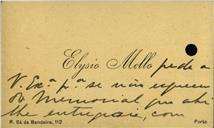 Elysio Mello pede a
V. Exª. pª. se não esquecer
do Memorial que ahi
lhe entreguei, com
R. Sá da Bandeira, 112 Porto